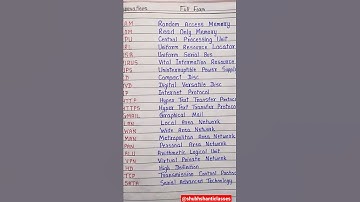 Full Form
RAM Random Access Memory
Read Only Memory
Central Processing Unit
Uniform Resource Locator
Uniform Serial Bus
VIRUS Vital Information Resource
UPS Uninterruptible Power Supply
Compact Disc
Digital Versatile Disc
IP Internet Protocol
HTTP Hyper Text Transfer Protoco
HTTPS Hyper Text Transfer Protoco
GMAIL Graphical Mail
LAN Local Area Network
WAN Wide Area Network
MAN Metropolitan Area Network
PAN Personal Area Network
ALU Arithmetic Logical Unit
VPN Virtual Private Network
HD High Definition
TCP Transmission Control Protoco
SATA Serial Advanced Technology
@shubhshanticlasses